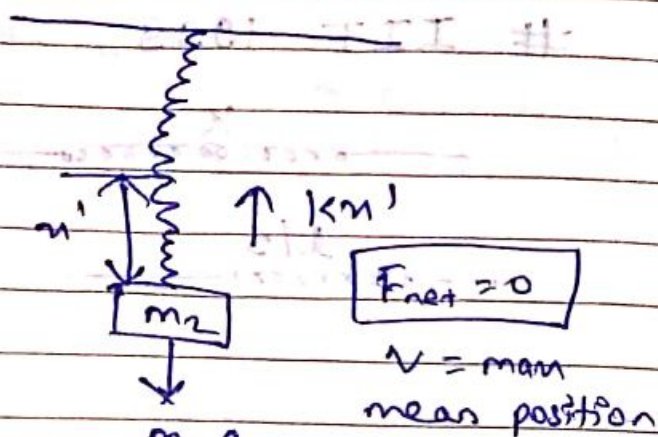 x'
↑ kx'
m2
Fnet = 0
v = max
mean position